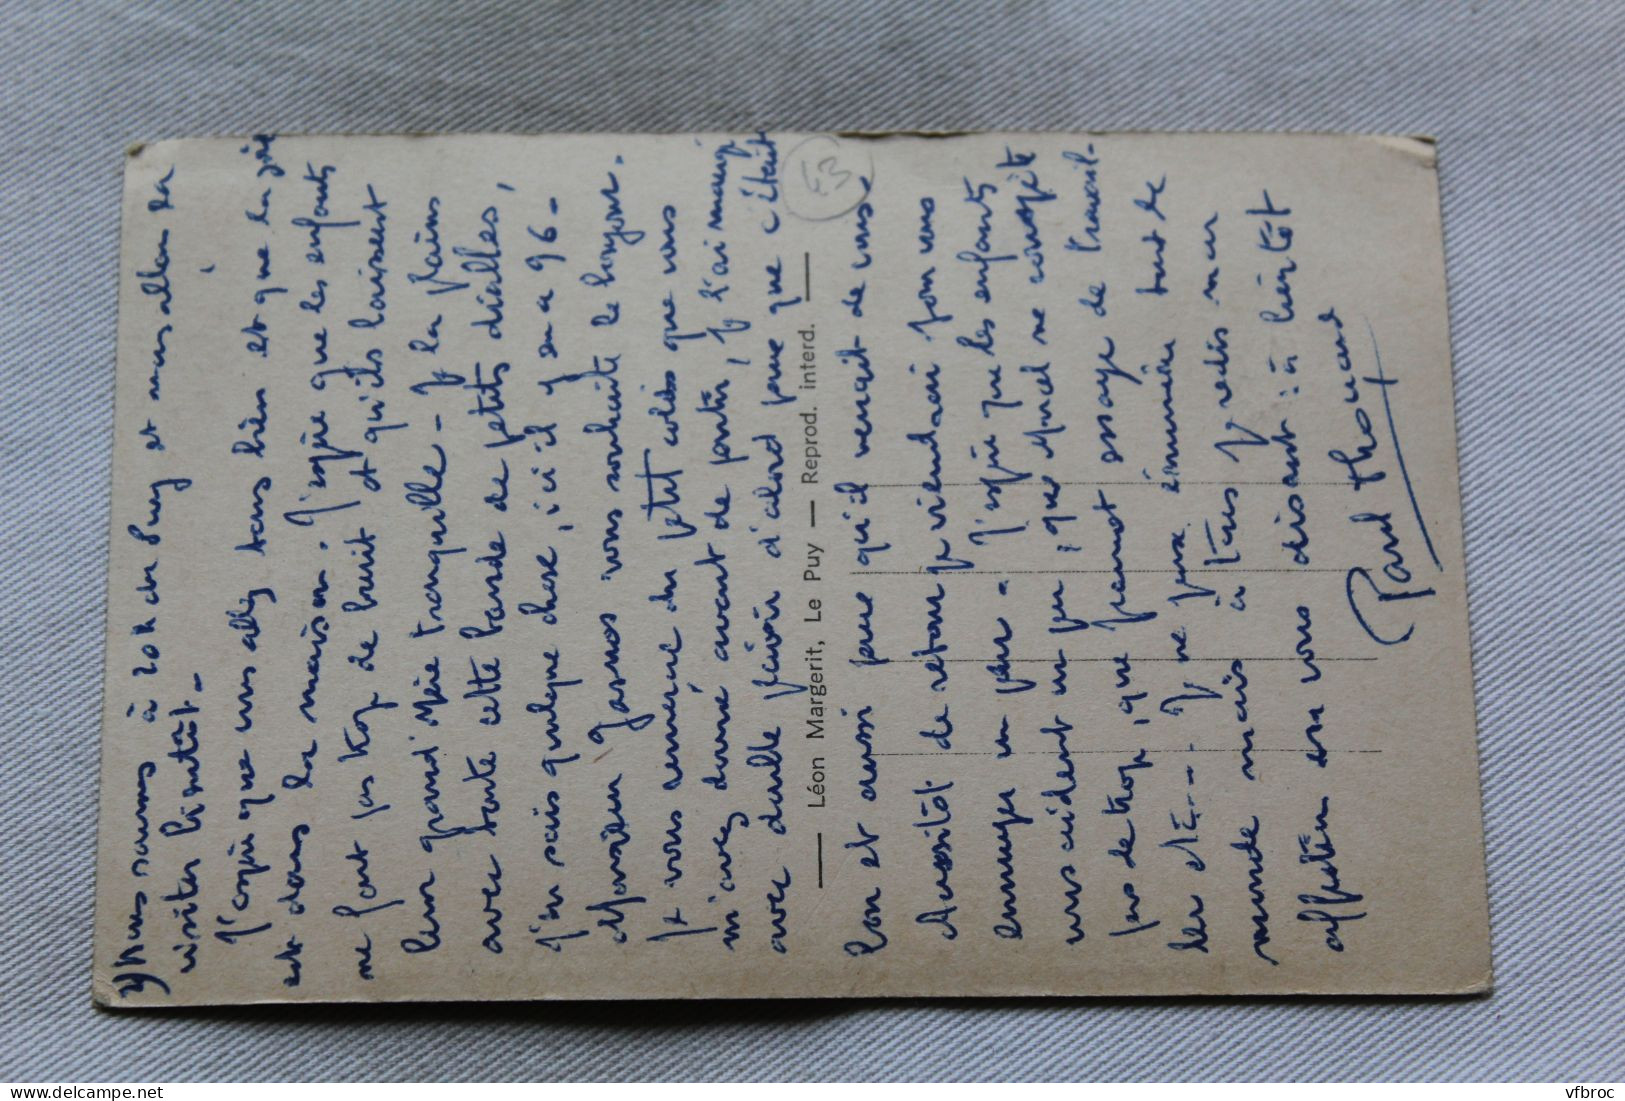 2) Nous sommes à 20k du Puy et nous allons la
visiter bientôt.
J'espère que vous allez tous bien et que la joie
est dans la maison. J'espère que les enfants
ne font pas trop de bruit et qu'ils laissent
leur grand'Mère tranquille - Je la plains
avec toute cette bande de petits diables,
j'en sais quelque chose, ici il y en a 96 -
Monsieur vous souhaite le bonjour.
Je vous remercie du petit colis que vous
m'avez donné avant de partir, je l'ai mangé
avec d'abord parce que c'était
43
Léon Margerit, Le Puy — Reprod. interd.
bon et aussi parce qu'il venait de vous.
Aussitôt de retour je viendrai pour vous
ennuyer un peu - J'espère que les enfants
vous aident un peu, que ne complète
pas de trop, que essaye de travail-
ler etc... Je ne tout le
monde mais à tous je redis mon
affection en vous disant : à bientôt
Paul Thouard
Delcampe.net
vfbroc